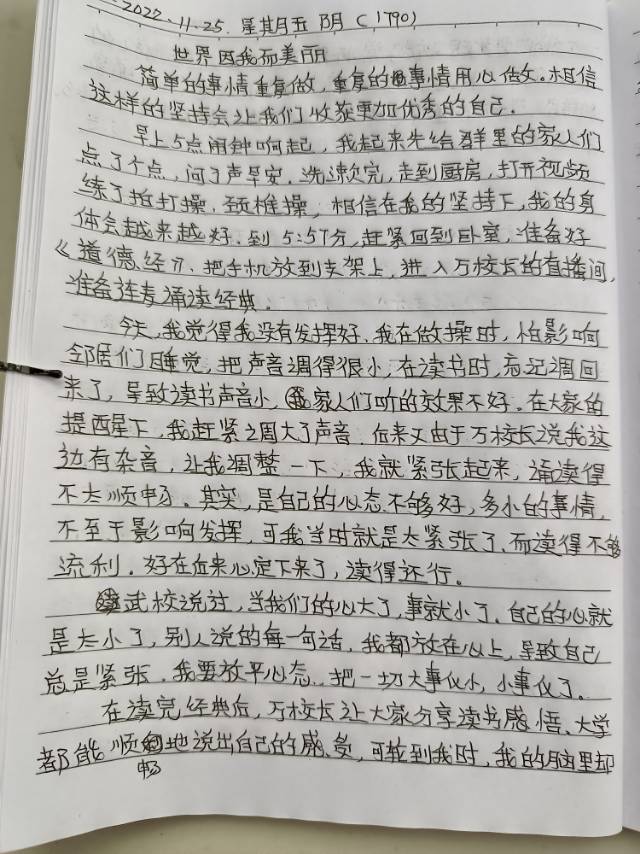 2022.11.25.星期五 阴(1790)
世界因我而美丽
简单的事情重复做,重复的事情用心做。相信
这样的坚持会让我们收获更加优秀的自己.
早上5点闹钟响起,我起来先给群里的家人们
点了个点,问了声早安.洗漱完,走到厨房,打开视频
练了拍打操,颈椎操,相信在我的坚持下,我的身
体会越来越好.到5:57分,赶紧回到卧室,准备好
《道德经》,把手机放到支架上,进入万校长的直播间,
准备连麦诵读经典.
今天,我觉得我没有发挥好,我在做操时,怕影响
邻居们睡觉,把声音调得很小,在读书时,忘记调回
来了,导致读书声音小,家人们听的效果不好.在大家的
提醒下,我赶紧调大了声音.后来又由于万校长说我这
边有杂音,让我调整一下,我就紧张起来,诵读得
不太顺畅.其实,是自己的心态不够好,多小的事情,
不至于影响发挥,可我当时就是太紧张了,而读得不够
流利.好在后来心定下来了,读得还行。
武校说过,当我们的心大了,事就小了.自己的心就
是太小了,别人说的每一句话,我都放在心上,导致自己
总是紧张.我要放平心态.把一切大事化小,小事化了.
在读完经典后,万校长让大家分享读书感悟.大学
都能顺畅地说出自己的感受,可轮到我时,我的脑里却